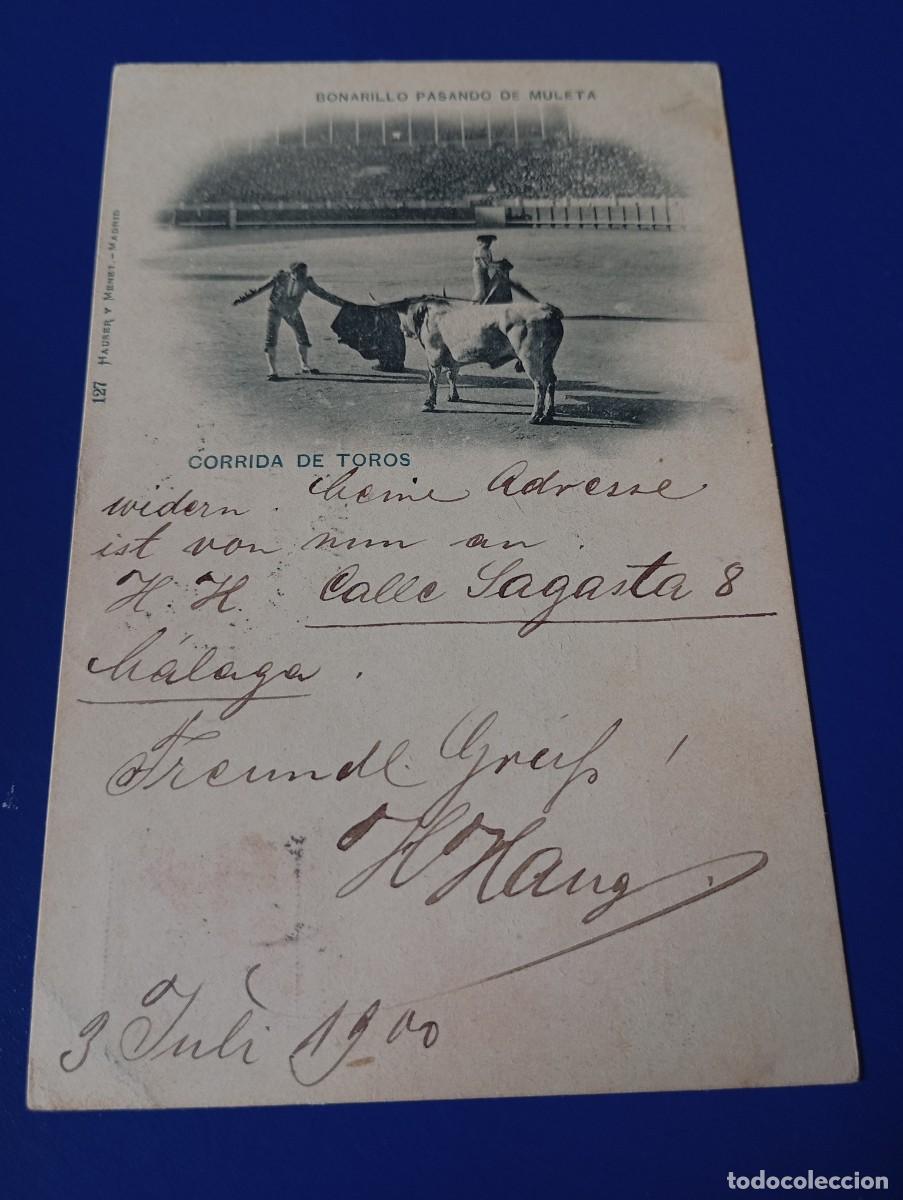 BONARILLO PASANDO DE MULETA
127 HAUSER Y MENET.-MADRID
CORRIDA DE TOROS
widern. Meine Adresse
ist von nun an.
H. H. Calle Sagasta 8
Málaga.
Freundl. Gruß!
H Haug
3 Juli 1900
todocoleccion